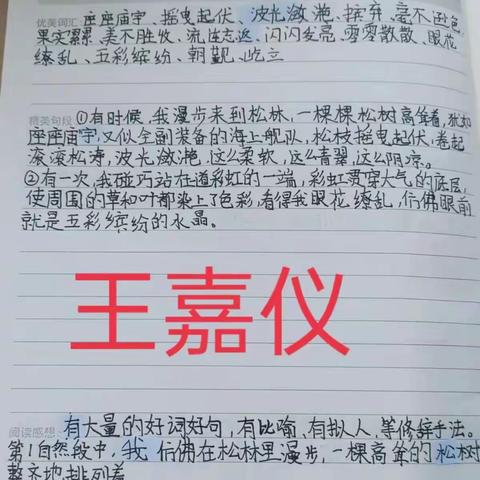 优美词汇 座座庙宇、摇曳起伏、波光潋滟、摈弃、毫不逊色
果实累累、美不胜收、流连忘返、闪闪发亮、零零散散、眼花
缭乱、五彩缤纷、朝觐、屹立
精美句段 ①有时候,我漫步来到松林,一棵棵松树高耸着,犹如
座座庙宇,又似全副装备的海上舰队,松枝摇曳起伏,卷起
滚滚松涛,波光潋滟,这么柔软,这么青翠,这么阴凉。
②有一次,我碰巧站在道彩虹的一端,彩虹贯穿大气的底层,
使周围的草和叶都染上了色彩,看得我眼花缭乱,仿佛眼前
就是五彩缤纷的水晶。
王嘉仪
阅读感想 有大量的好词好句,有比喻、有拟人、等修辞手法。
第1自然段中,我仿佛在松林里漫步,一棵高耸的松树
整齐地排列着